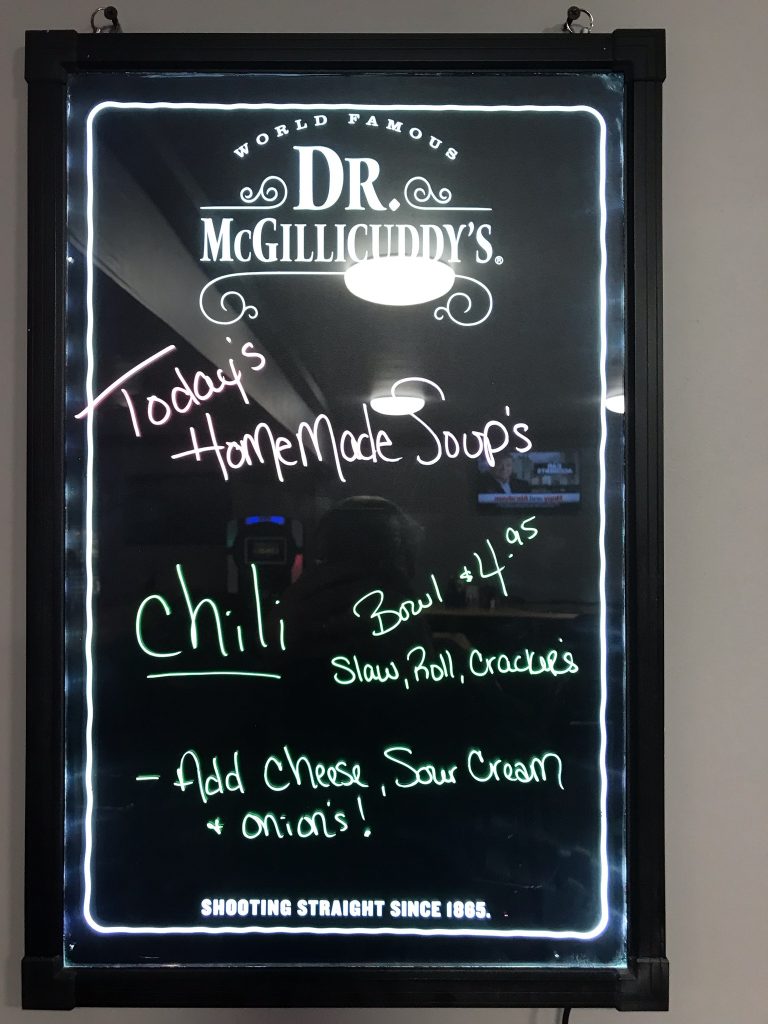 WORLD FAMOUS
DR.
MCGILLICUDDY'S®
Today's
HomeMade Soup's
Chili
Bowl $4.95
Slaw, Roll, Cracker's
- Add Cheese, Sour Cream
+ onion's!
SHOOTING STRAIGHT SINCE 1865.